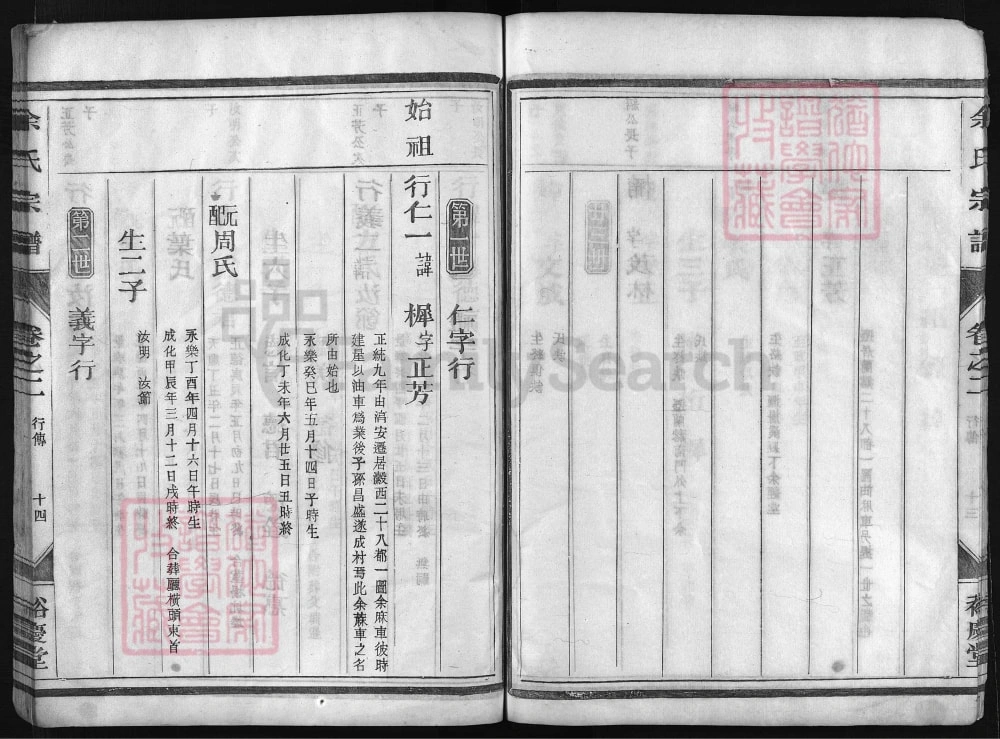 余氏宗譜
卷之二
行傳
十三
裕慶堂
第一世
仁字行
始祖
行仁一
諱
樨
字
正芳
正統九年由滈安遷居㵎西二十八都一圖余麻車彼時
建屋以油車為業後子孫昌盛遂成村焉此余蔴車之名
所由始也
永樂癸巳年五月十四日子時生
成化丁未年六月廿五日丑時終
元配周氏
永樂丁酉年四月十六日午時生
成化甲辰年三月十二日戌時終
合葬𨞬橫頭東首
生二子
汝明
汝篇
第二世
義字行
余氏宗譜
卷之二
行傳
十四
裕慶堂
FamilySearch